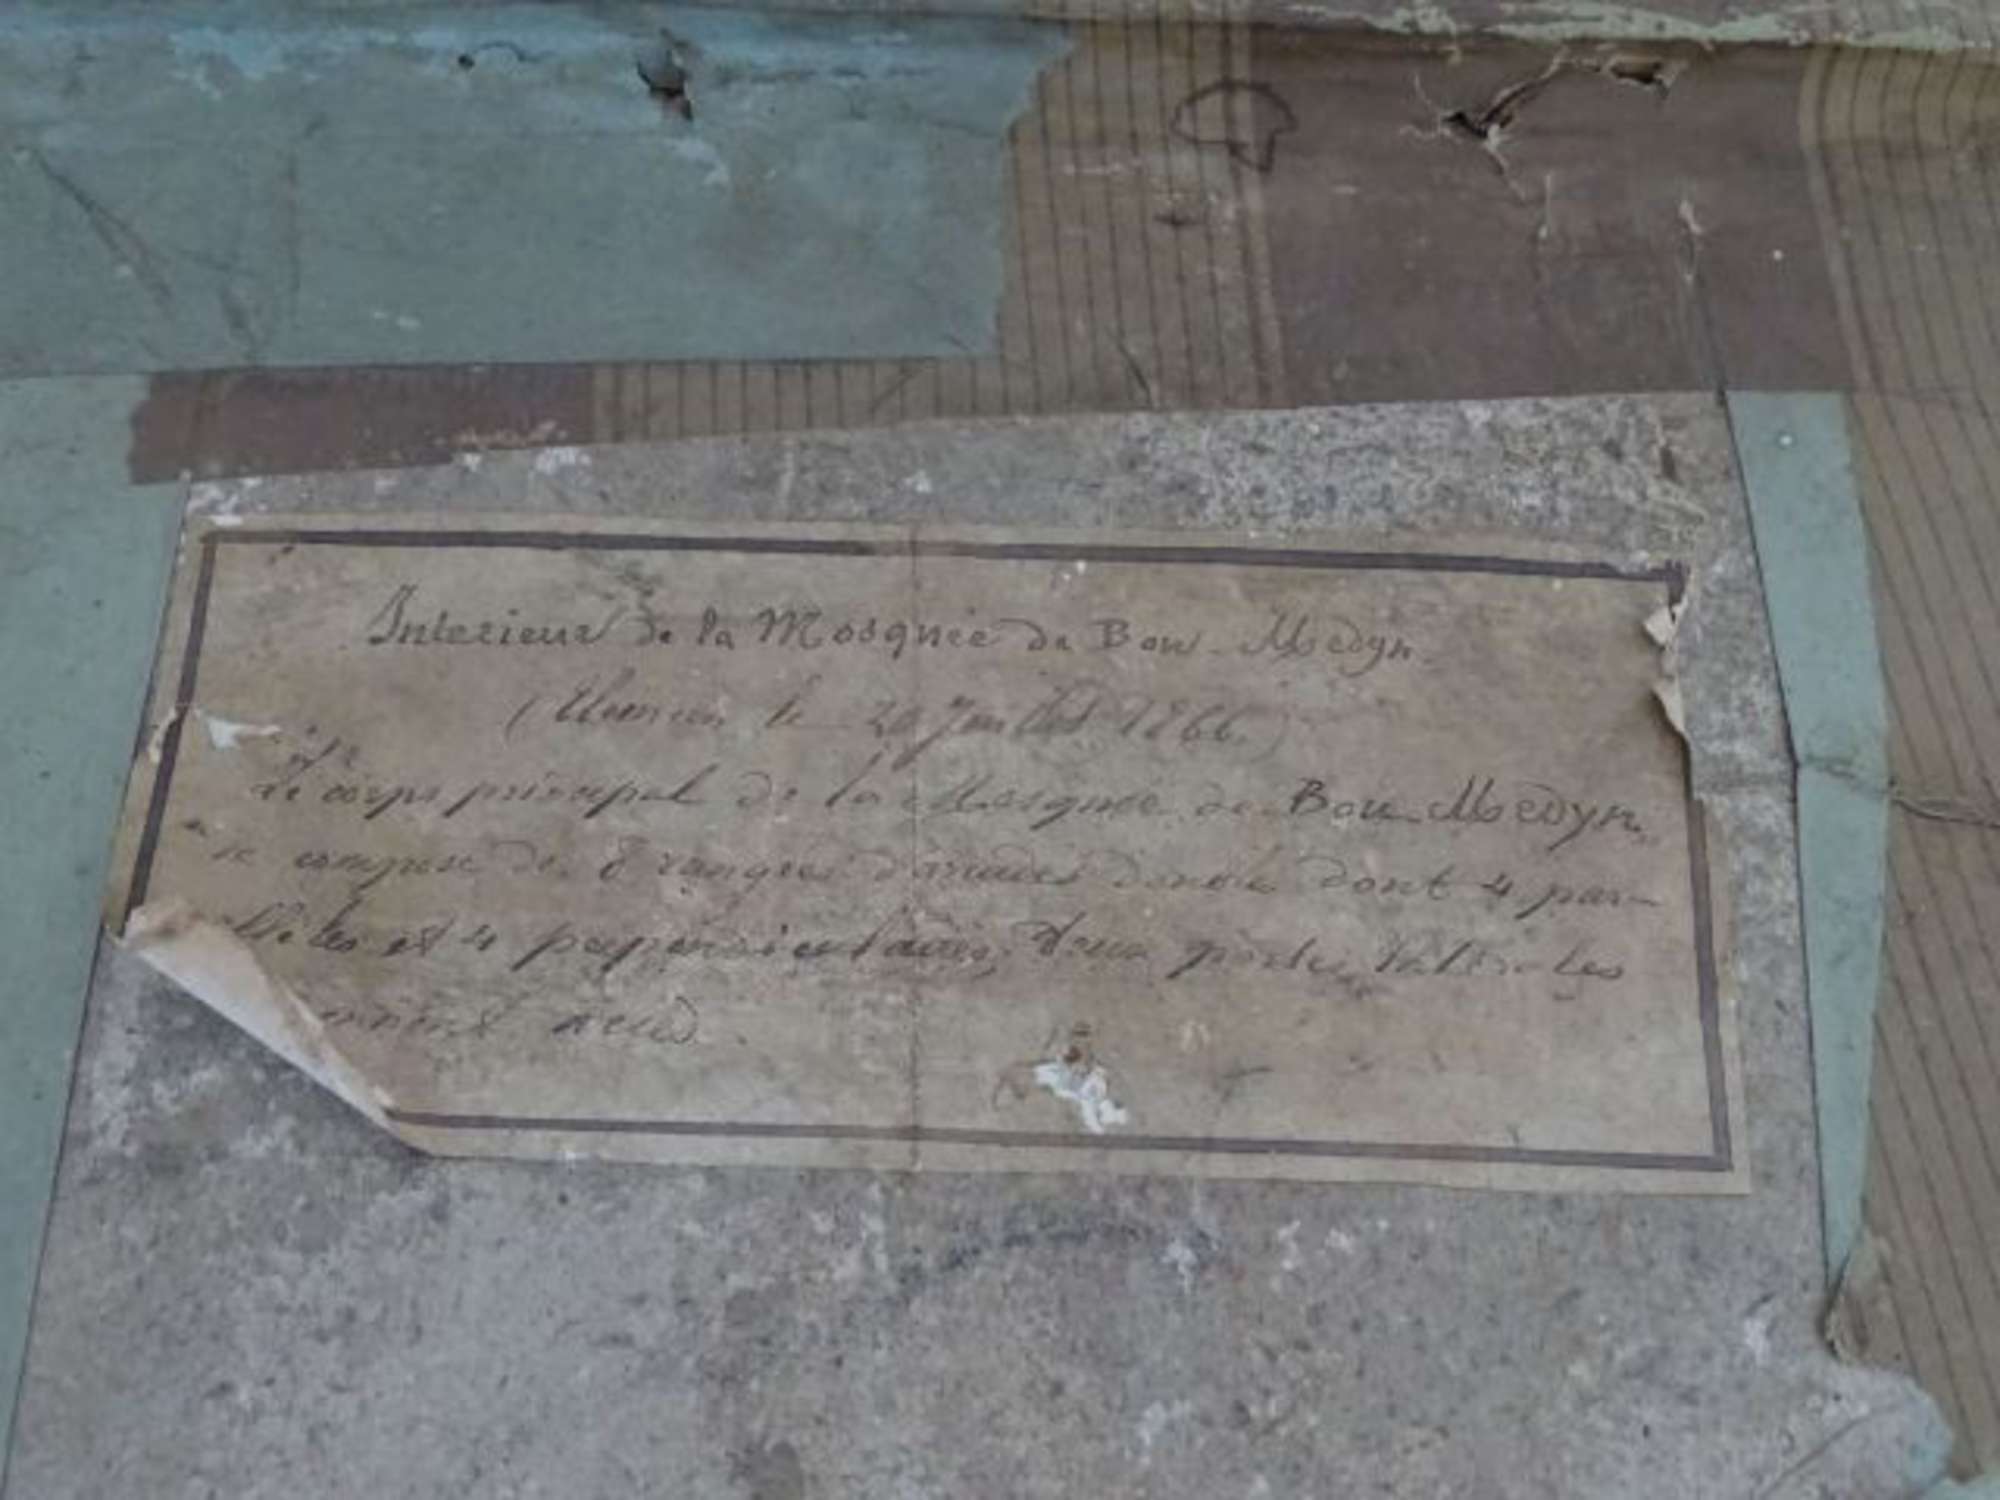 Interieur de la Mosquée de Bou-Medyn.
(Tlemcen le 20 Juillet 1866.)
Le corps principal de la Mosquée de Bou Medyn
se compose de 8 rangées d'arcades dont 4 par-
llèles et 4 perpendiculaires, deux portes latérales